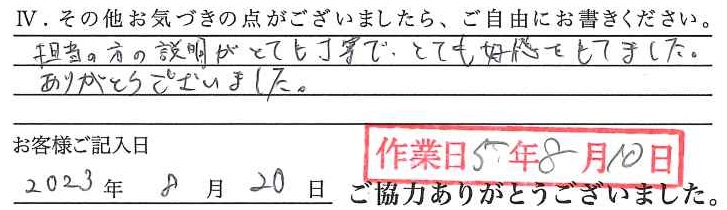 Ⅳ．その他お気づきの点がございましたら、ご自由にお書きください。
担当の方の説明がとても丁寧で、とても好感をもてました。
ありがとうございました。
お客様ご記入日
作業日5年8月10日
2023年 8月20日 ご協力ありがとうございました。